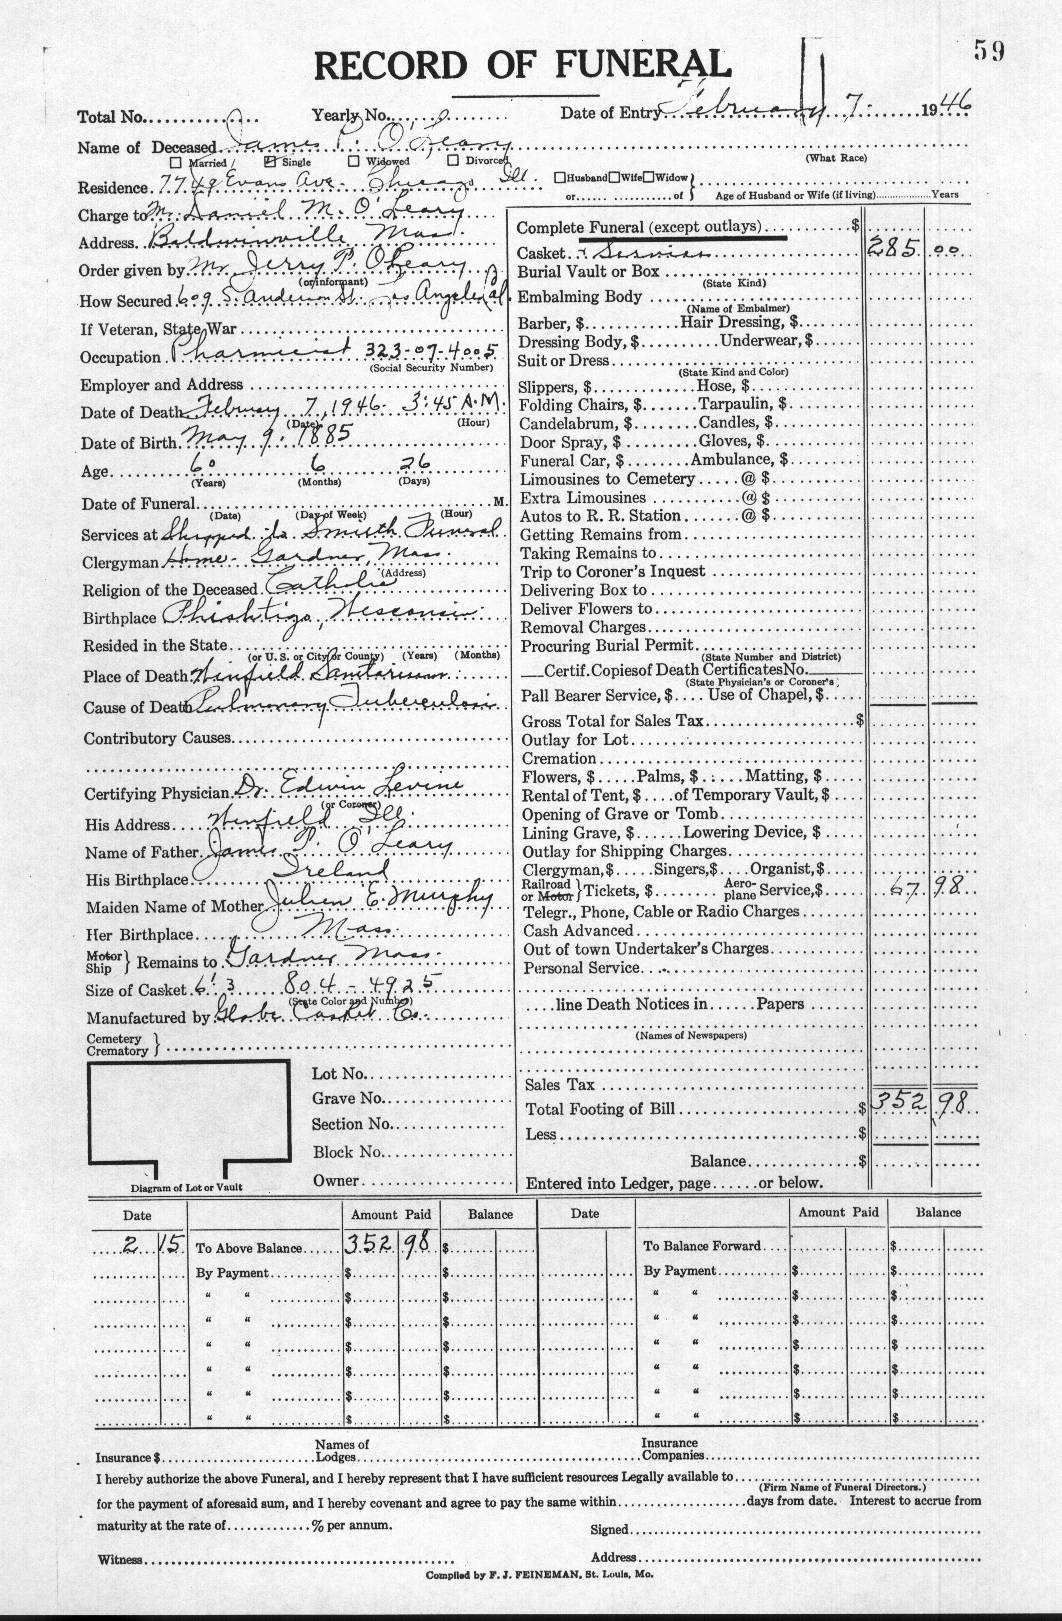 59
RECORD OF FUNERAL
Total No............ Yearly No............ Date of Entry February 7. 1946
Name of Deceased James P. O'Leary
(What Race)
Married Single Widowed Divorced
Residence. 7749 Evans Ave. Chicago Ill. Husband Wife Widow
or.................of Age of Husband or Wife (if living)............Years
Charge to Mr. Daniel M. O'Leary
Address. Baldwinville Mass.
Order given by Mr. Jerry P. O'Leary
(or informant)
How Secured 609 S. Anderson St. Los Angeles Cal.
If Veteran, State War
Occupation Pharmicist 323-07-4005
(Social Security Number)
Employer and Address
Date of Death February 7, 1946. 3:45 A.M.
(Date) (Hour)
Date of Birth. May 9. 1885
Age 60 6 26
(Years) (Months) (Days)
Date of Funeral M.
(Date) (Day of Week) (Hour)
Services at Shipped to Smith Funeral
Clergyman Home - Gardner, Mass.
(Address)
Religion of the Deceased. Catholic
Birthplace Phishtigo, Wisconsin.
Resided in the State
(or U. S. or City or County) (Years) (Months)
Place of Death Winfield Sanitarium
Cause of Death Pulmonary Tuberculosis
Contributory Causes
Certifying Physician Dr. Edwin Levine
(or Coroner)
His Address Winfield Ill.
Name of Father. James P. O'Leary
His Birthplace Ireland
Maiden Name of Mother E. Murphy
Her Birthplace Mass.
Motor Ship } Remains to Gardner Mass.
Size of Casket. 6' 3 804 - 4925
(State Color and Number)
Manufactured by Globe Casket Co.
Cemetery
Crematory }
Lot No.
Grave No.
Section No.
Block No.
Owner
Diagram of Lot or Vault
Complete Funeral (except outlays) $
Casket. + Services 285 00
Burial Vault or Box
(State Kind)
Embalming Body
(Name of Embalmer)
Barber, $............Hair Dressing, $
Dressing Body, $..........Underwear, $
Suit or Dress
(State Kind and Color)
Slippers, $.............Hose, $
Folding Chairs, $.......Tarpaulin, $
Candelabrum, $........Candles, $
Door Spray, $.........Gloves, $
Funeral Car, $........Ambulance, $
Limousines to Cemetery.....@ $
Extra Limousines...........@ $
Autos to R. R. Station.......@ $
Getting Remains from
Taking Remains to
Trip to Coroner's Inquest
Delivering Box to
Deliver Flowers to
Removal Charges
Procuring Burial Permit
(State Number and District)
Certif. Copies of Death Certificates No.
(State Physician's or Coroner's)
Pall Bearer Service, $.... Use of Chapel, $
Gross Total for Sales Tax $
Outlay for Lot
Cremation
Flowers, $.....Palms, $......Matting, $
Rental of Tent, $....of Temporary Vault, $
Opening of Grave or Tomb
Lining Grave, $......Lowering Device, $
Outlay for Shipping Charges
Clergyman, $.....Singers, $....Organist, $
Railroad or Motor } Tickets, $ Aeroplane Service, $ 67 98
Telegr., Phone, Cable or Radio Charges
Cash Advanced
Out of town Undertaker's Charges
Personal Service
....line Death Notices in......Papers
(Names of Newspapers)
Sales Tax
Total Footing of Bill $ 352 98
Less $
Balance $
Entered into Ledger, page......or below.
Date Amount Paid Balance Date Amount Paid Balance
2 15 To Above Balance 352 98 $ To Balance Forward $
By Payment $ $ By Payment $ $
" " $ $ " " $ $
" " $ $ " " $ $
" " $ $ " " $ $
" " $ $ " " $ $
" " $ $ " " $ $
" " $ $ " " $ $
Insurance $ Names of Lodges Insurance Companies
I hereby authorize the above Funeral, and I hereby represent that I have sufficient resources Legally available to
(Firm Name of Funeral Directors.)
for the payment of aforesaid sum, and I hereby covenant and agree to pay the same within..................days from date. Interest to accrue from
maturity at the rate of............% per annum. Signed
Witness Address
Compiled by F. J. FEINEMAN, St. Louis, Mo.